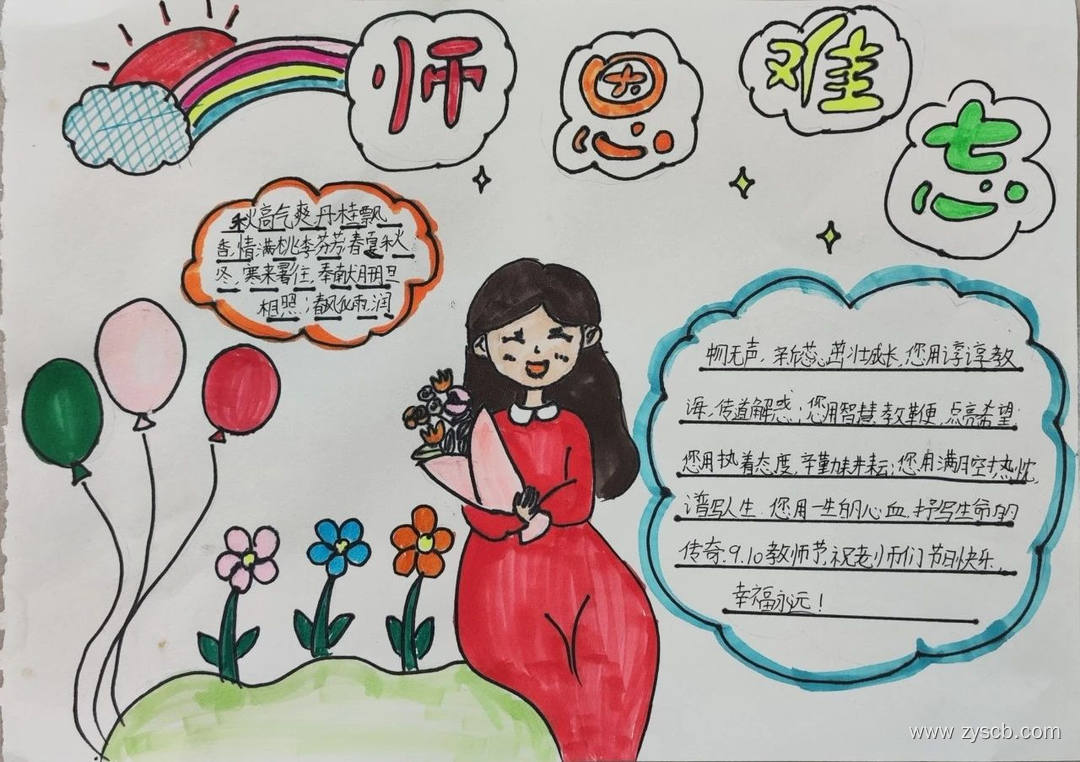 师恩难忘
秋高气爽,丹桂飘
香,情满桃李芬芳;春夏秋
冬,寒来暑往,奉献肝胆
相照;春风化雨,润
物无声,新蕊茁壮成长,您用谆谆教
诲,传道解惑;您用智慧教鞭,点亮希望
您用执着态度,辛勤耕耘;您用满腔热忱,
谱写人生,您用一生的心血,抒写生命的
传奇.9.10教师节,祝老师们节日快乐,
幸福永远!
www.zyscb.com